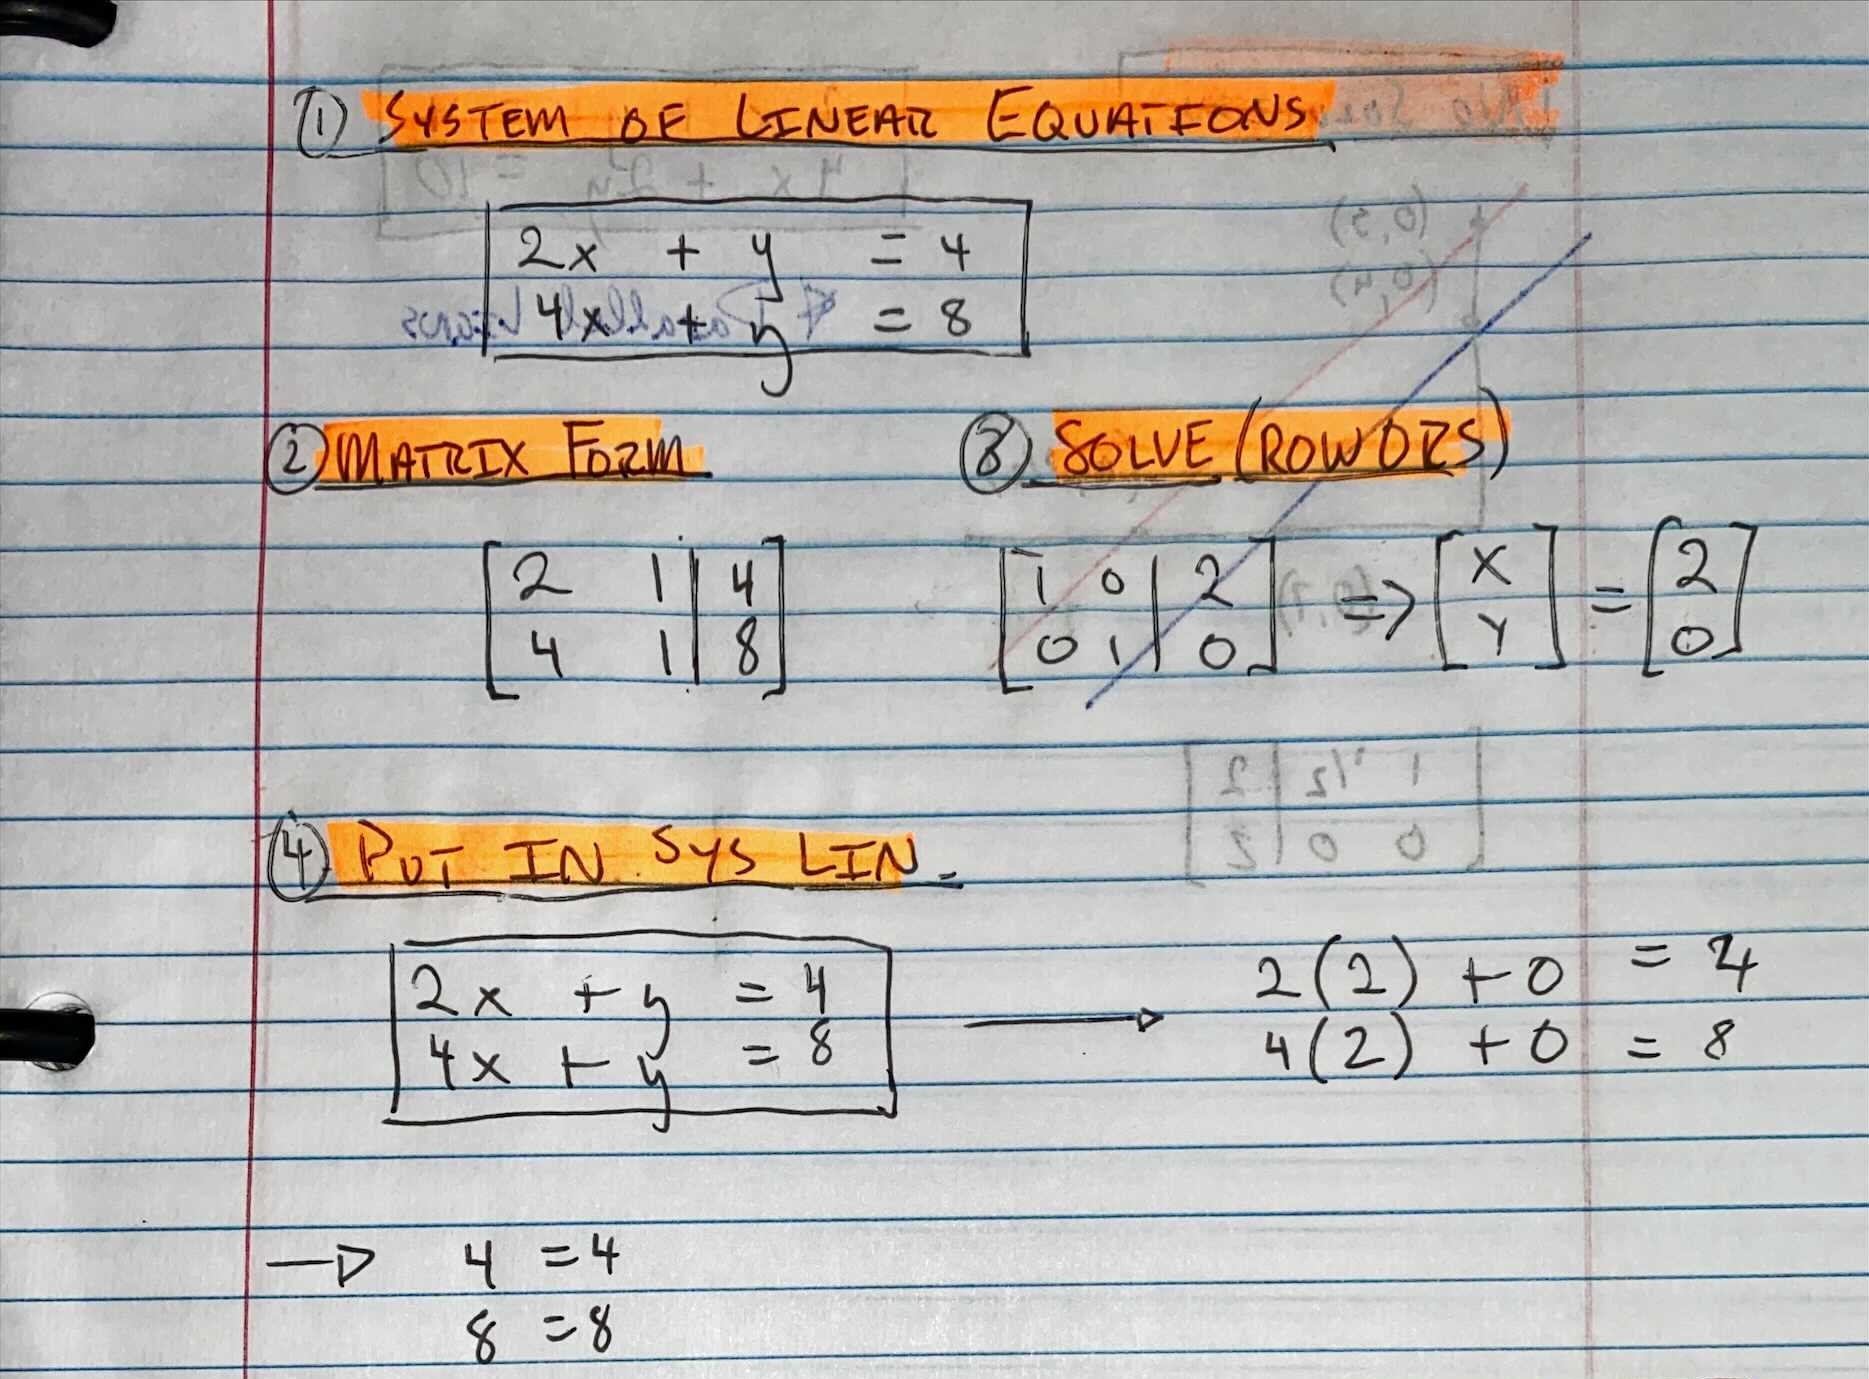 ① SYSTEM OF LINEAR EQUATIONS
2x + y = 4
4x + y = 8
② MATRIX FORM
[2 1 | 4]
[4 1 | 8]
③ SOLVE (ROW OPS)
[1 0 | 2]
[0 1 | 0]
=> [x] = [2]
[y] [0]
④ PUT IN SYS LIN.
2x + y = 4
4x + y = 8
→ 2(2) + 0 = 4
4(2) + 0 = 8
→ 4 = 4
8 = 8